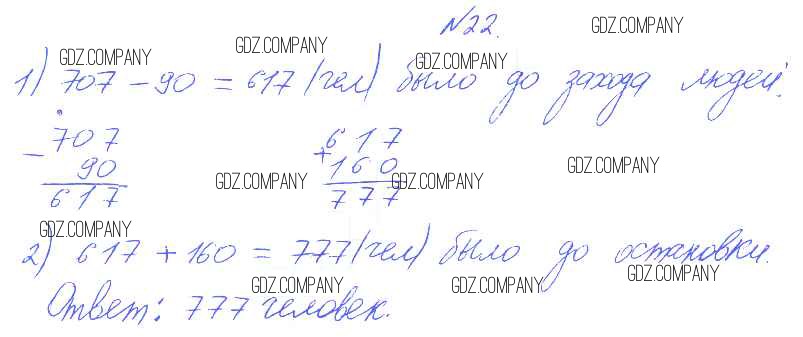 №22.
GDZ.COMPANY
GDZ.COMPANY
GDZ.COMPANY
GDZ.COMPANY
1) 707 - 90 = 617 (чел) было до захода людей.
- 707
90
617
+ 617
160
777
GDZ.COMPANY
GDZ.COMPANY
GDZ.COMPANY
GDZ.COMPANY
2) 617 + 160 = 777 (чел) было до остановки.
GDZ.COMPANY
GDZ.COMPANY
GDZ.COMPANY
Ответ: 777 человек.